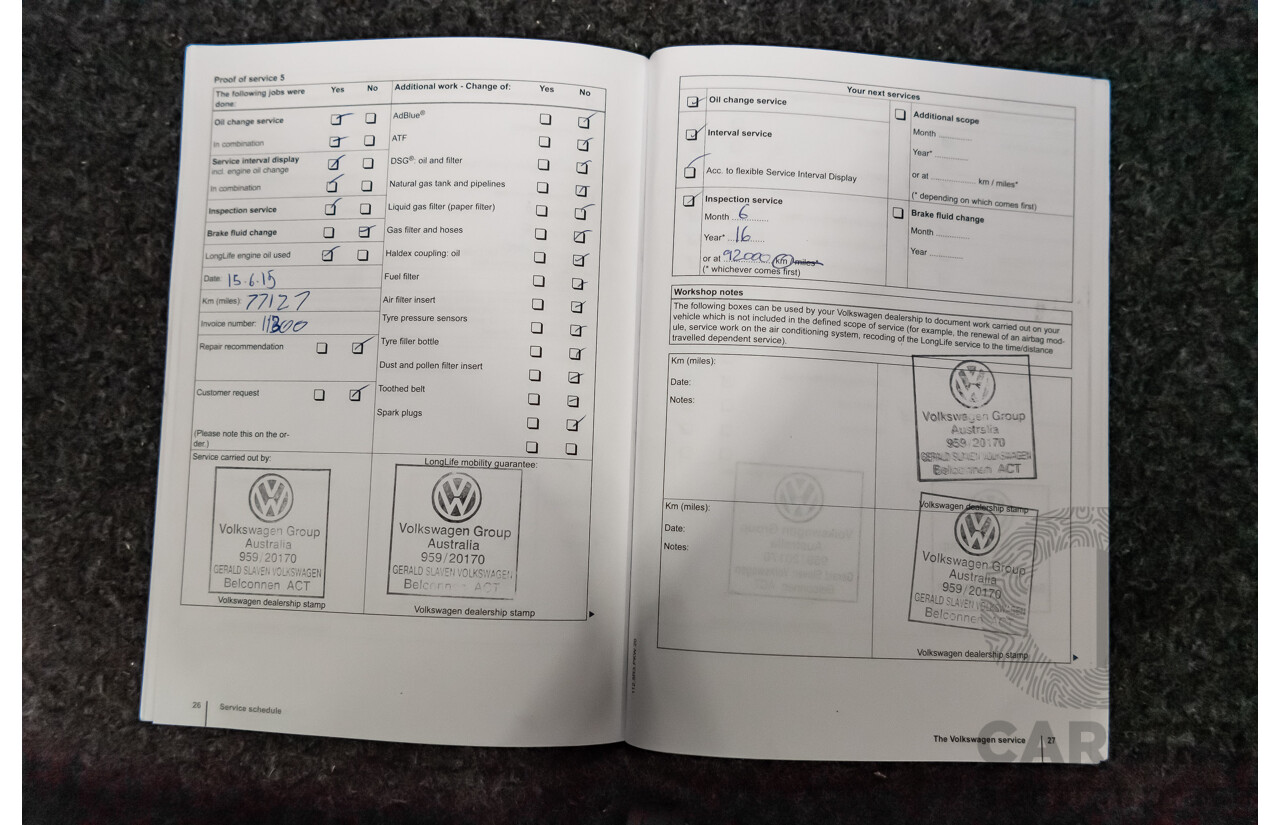 Proof of service 5
The following jobs were done: Yes No
Oil change service
In combination
Service interval display
incl. engine oil change
In combination
Inspection service
Brake fluid change
LongLife engine oil used
Date: 15.6.15
Km (miles): 77127
Invoice number:
Repair recommendation
Customer request
(Please note this on the or-
der.)
Additional work - Change of: Yes No
AdBlue®
ATF
DSG®: oil and filter
Natural gas tank and pipelines
Liquid gas filter (paper filter)
Gas filter and hoses
Haldex coupling: oil
Fuel filter
Air filter insert
Tyre pressure sensors
Tyre filler bottle
Dust and pollen filter insert
Toothed belt
Spark plugs
Service carried out by:
Volkswagen Group
Australia
959/20170
GERALD SLAVEN VOLKSWAGEN
Belconnen ACT
Volkswagen dealership stamp
LongLife mobility guarantee:
Volkswagen Group
Australia
959/20170
GERALD SLAVEN VOLKSWAGEN
Belconnen ACT
Volkswagen dealership stamp
26 Service schedule
Your next services
Oil change service
Interval service
Acc. to flexible Service Interval Display
Inspection service
Month 6
Year* 16
or at 92000 km/miles*
(* whichever comes first)
Additional scope
Month
Year*
or at km / miles*
(* depending on which comes first)
Brake fluid change
Month
Year
Workshop notes
The following boxes can be used by your Volkswagen dealership to document work carried out on your
vehicle which is not included in the defined scope of service (for example, the renewal of an airbag mod-
ule, service work on the air conditioning system, recoding of the LongLife service to the time/distance
travelled dependent service).
Km (miles):
Date:
Notes:
Volkswagen Group
Australia
959/20170
GERALD SLAVEN VOLKSWAGEN
Belconnen ACT
Volkswagen dealership stamp
Km (miles):
Date:
Notes:
Volkswagen Group
Australia
959/20170
GERALD SLAVEN VOLKSWAGEN
Belconnen ACT
Volkswagen dealership stamp
The Volkswagen service 27